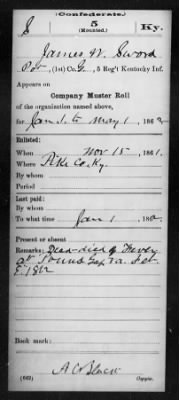 (Confederate.)
S 5 Ky.
(Mounted.)
James W. Sword
Pvt, (1st) Co. G, 5 Reg't Kentucky Infantry
Appears on
Company Muster Roll
of the organization named above,
for Jan 1. to May 1, 1862
Enlisted:
When Nov 15, 1861.
Where Pike Co. Ky.
By whom
Period
Last paid:
By whom
To what time Jan 1, 1862.
Present or absent
Remarks: Dead-died of Fever
at Pound Gap Va
1862
Book mark:
(662) Copyist.